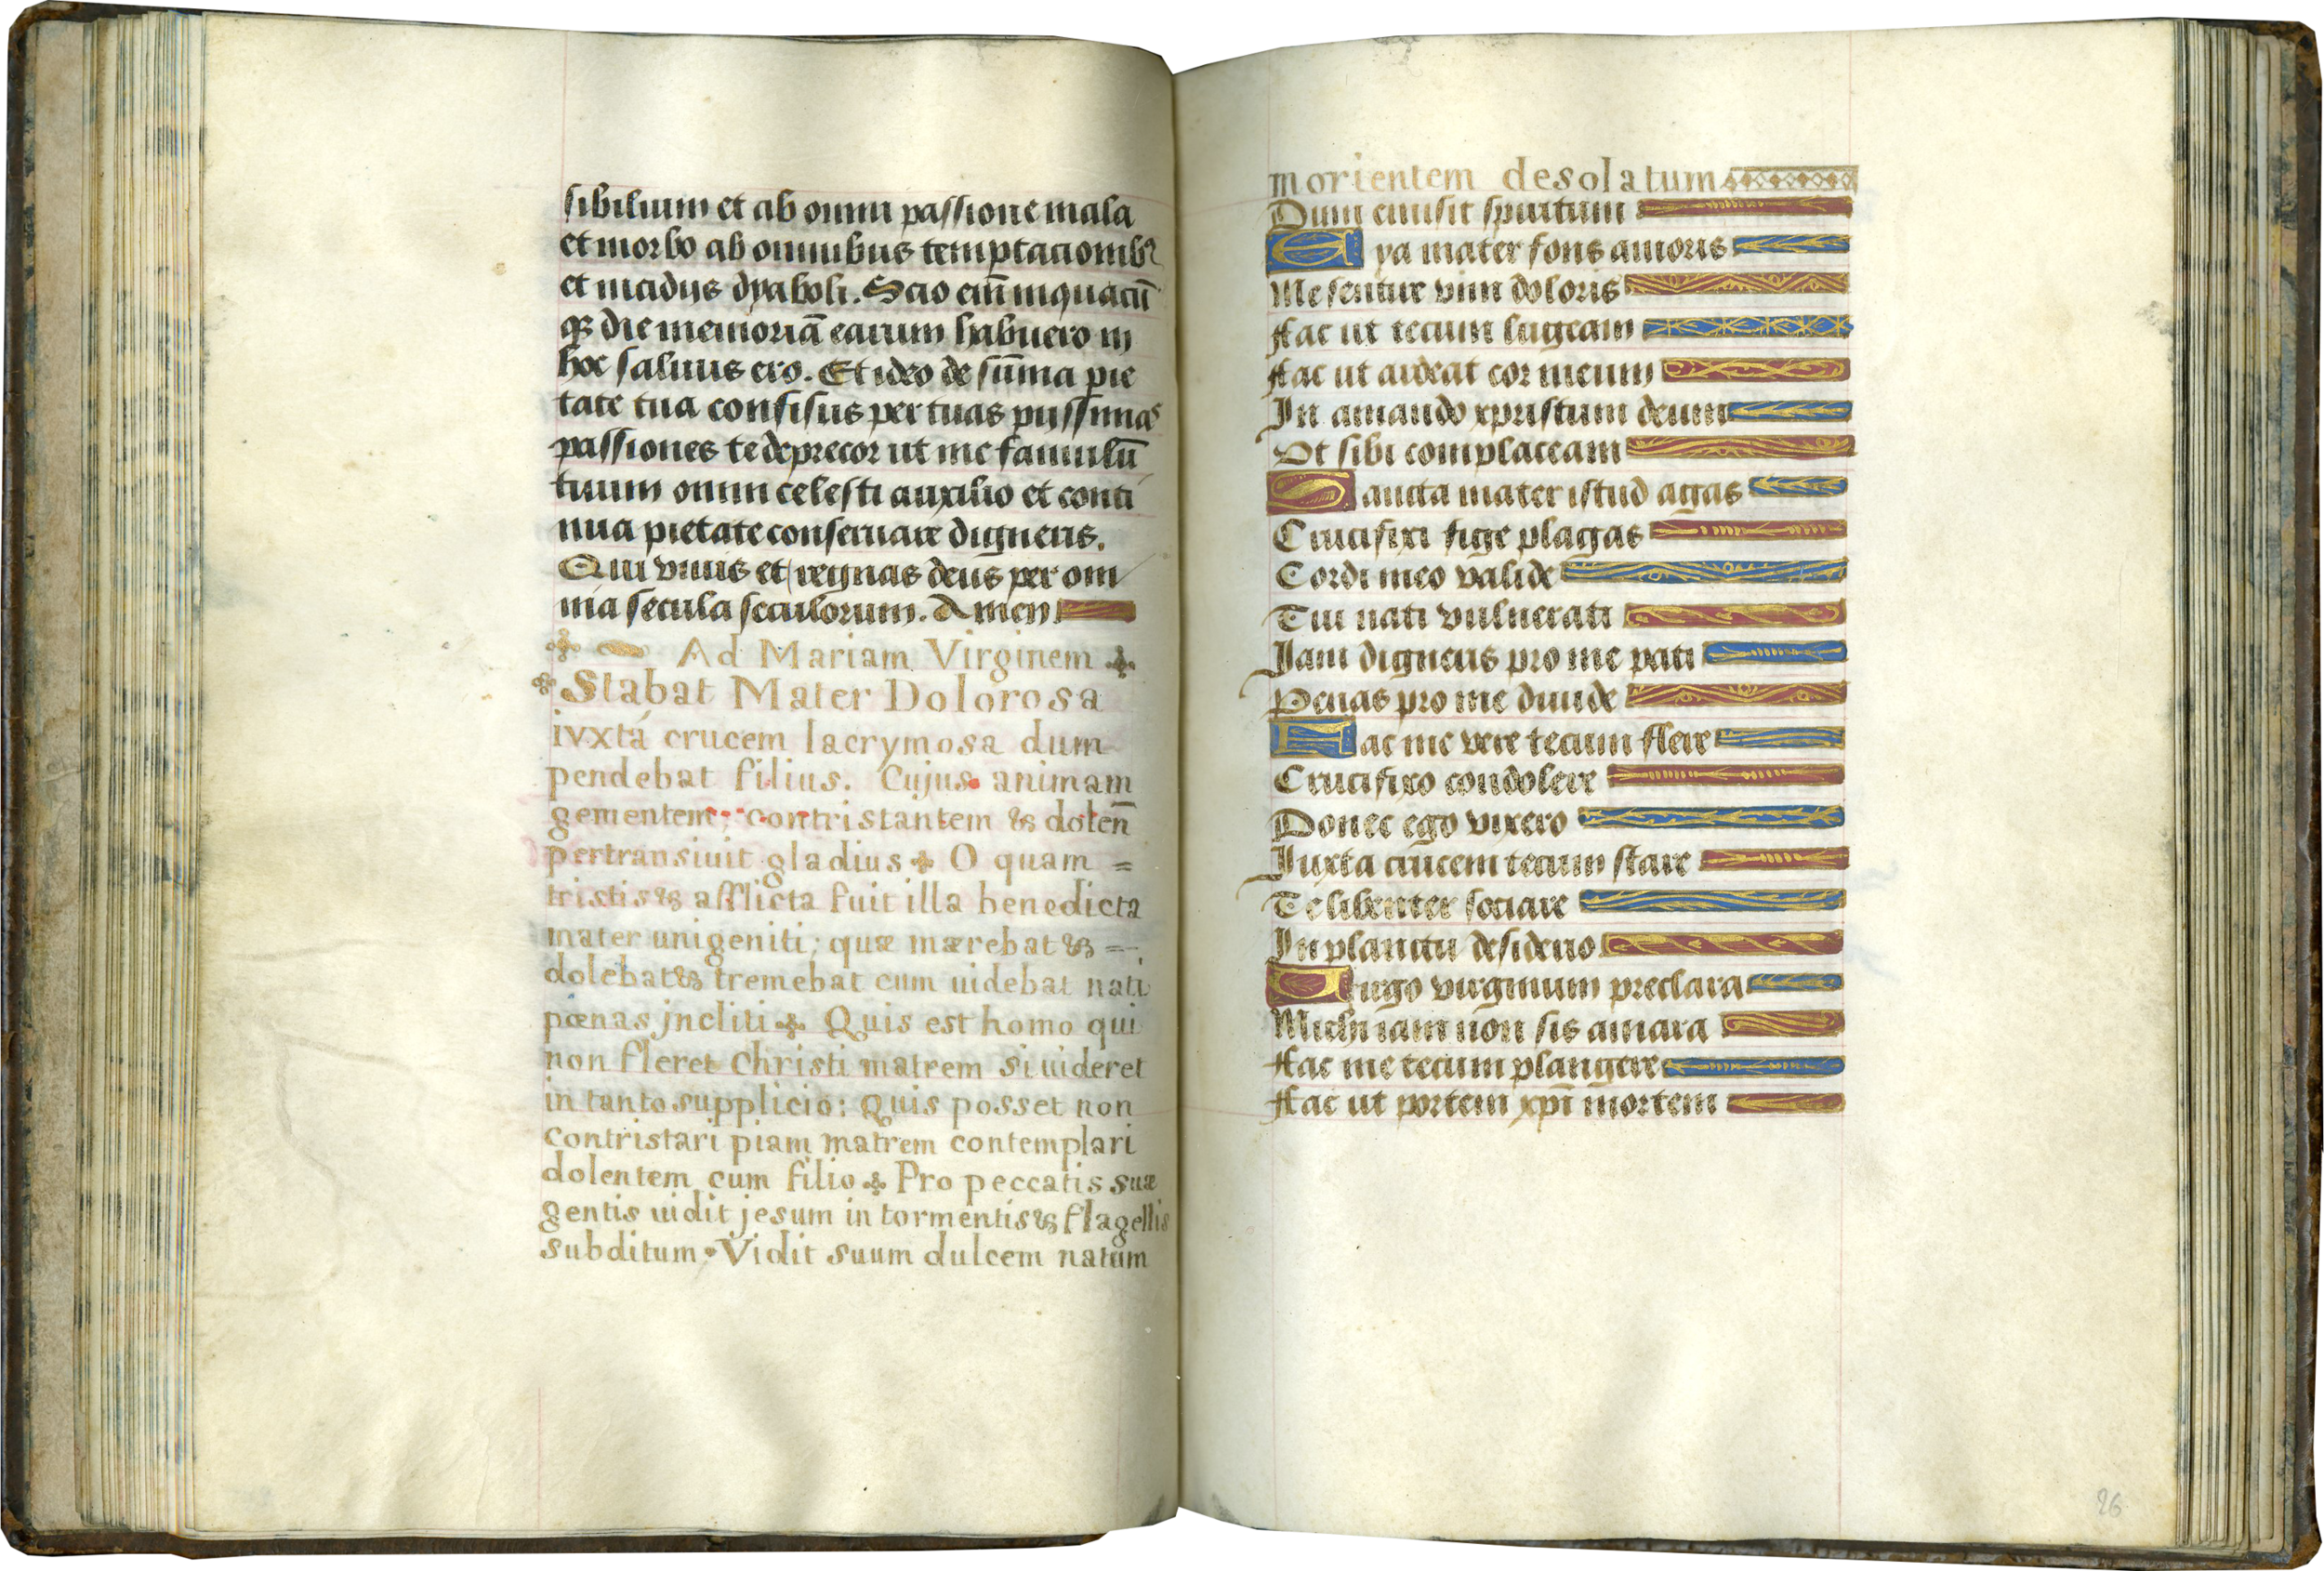 sibilium et ab omni passione mala
et morbo ab omnibus temptacionibꝰ
et incidiis dyaboli. Scio eni̅ inquacu̅
qꝫ die memoria̅ earum habuero in
hoc saluus ero. Et ideo de su̅ma pie
tate tua confisus per tuas piissimas
passiones te deprecor ut me famulu̅
tuum omni celesti auxilio et conti
nua pietate conseruare digneris.
Qui viuis et regnas deus per om
nia secula seculorum. Amen
Ad Mariam Virginem
Stabat Mater Dolorosa
ivxtá crucem lacrymosa dum
pendebat filius. Cujus animam
gementem, contristantem & dolen̅
pertransiuit gladius O quam =
tristis & afflicta fuit illa benedicta
mater unigeniti; quæ mærebat & =
dolebat & tremebat cum uidebat nati
pœnas jncliti Quis est homo qui
non fleret Christi matrem si uideret
in tanto supplicio: Quis posset non
contristari piam matrem contemplari
dolentem cum filio Pro peccatis suæ
gentis uidit jesum in tormentis & flagellis
subditum • Vidit suum dulcem natum
morientem desolatum
Dum emisit spiritum
Eya mater fons amoris
Me sentire vim doloris
Fac ut tecum lugeam
Fac ut ardeat cor meum
In amando xpristum deum
Vt sibi complaceam
Sancta mater istud agas
Crucifixi fige plagas
Cordi meo valide
Tui nati vulnerati
Jam digneris pro me pati
Penas pro me diuide
Fac me vere tecum flere
Crucifixo condolere
Donec ego vixero
Iuxta crucem tecum stare
Te libenter sociare
In planctu desiderio
Virgo virginum preclara
Michi iam non sis amara
Fac me tecum plangere
Fac ut portem xpi̅ mortem
26